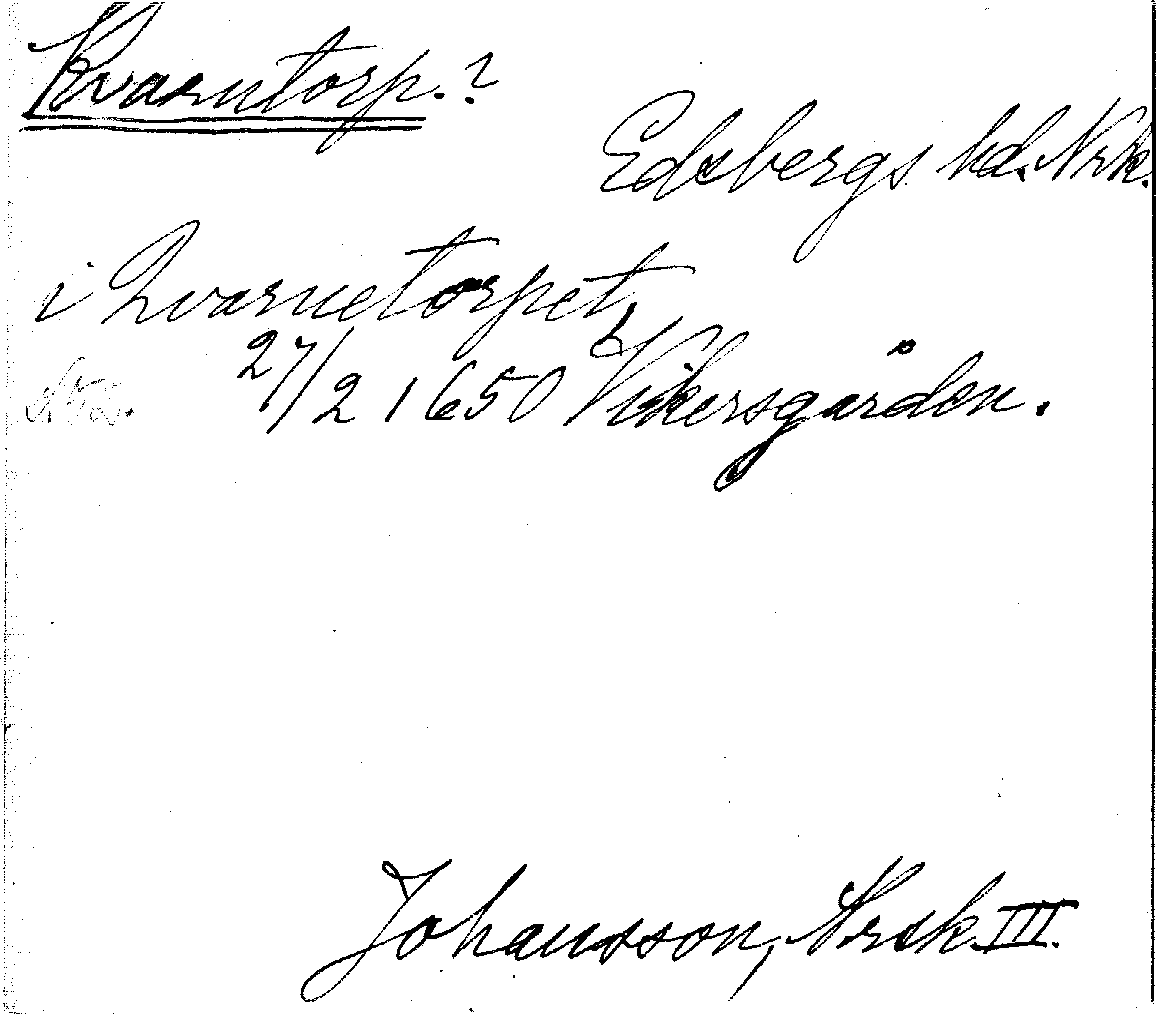 Kvarntorp.?
Edsbergs hd. Nrk.
i Qvarnetorpet,
27/2 1650 Vikersgården.
Johansson, Nrsk III.